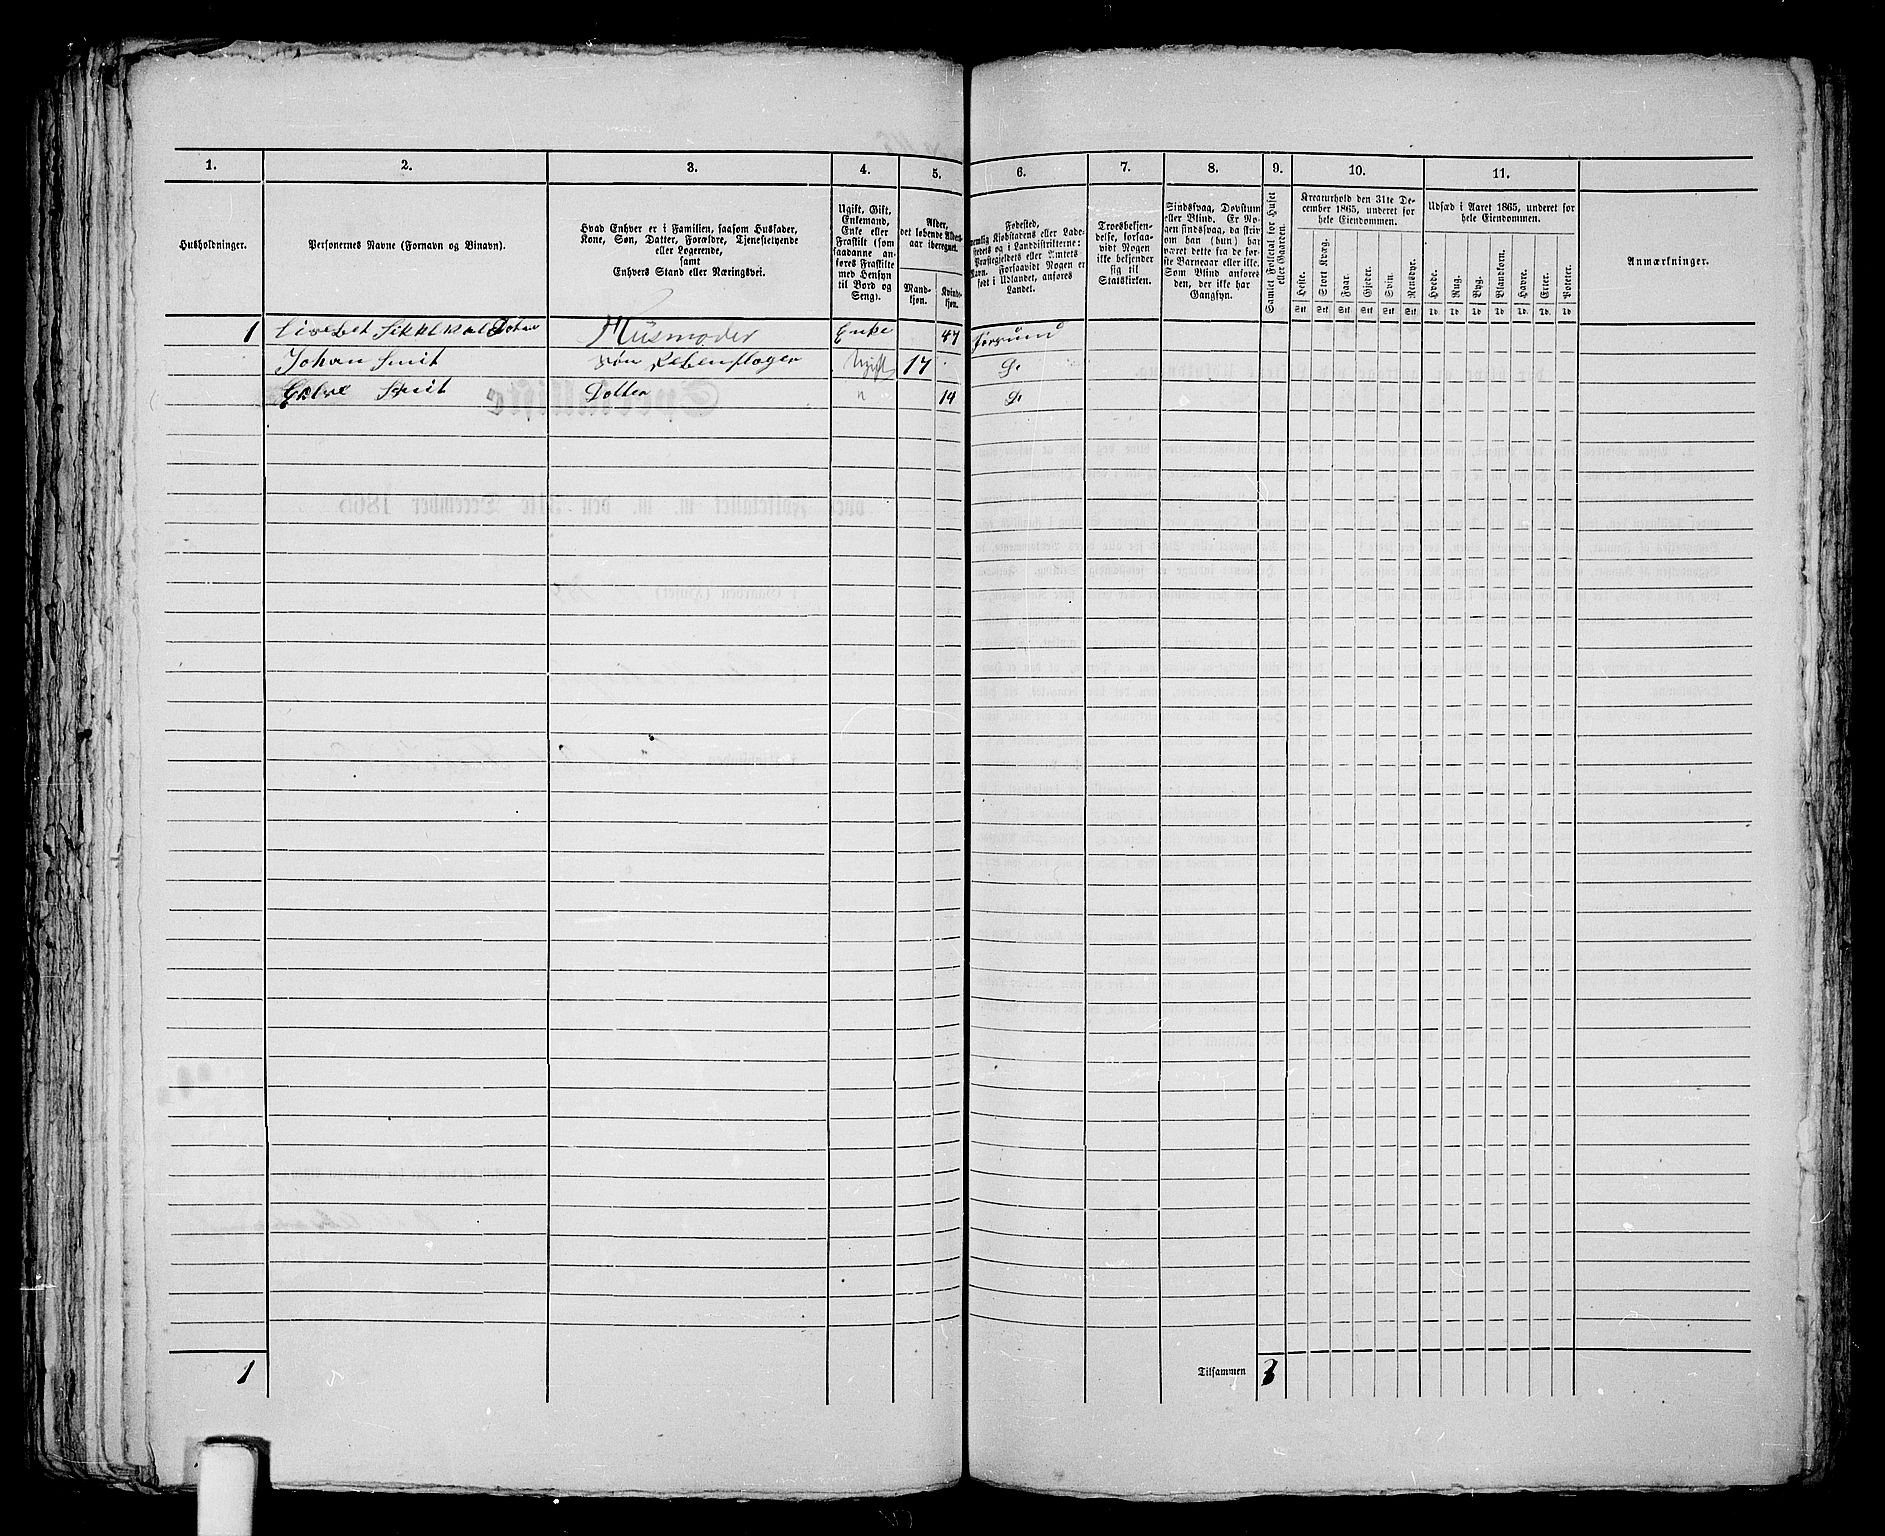 1.
2.
3.
4.
5.
6.
7.
8.
9.
10.
11.
Husholdninger.
Personernes Navne (Fornavn og Binavn).
Hvad Enhver er i Familien, saasom Husfader,
Kone, Søn, Datter, Forældre, Tjenestetyende
eller Logerende,
samt
Enhvers Stand eller Næringsvei.
Ugift, Gift,
Enkemand,
Enke eller
Fraskilt (som
saadanne an-
føres Fraskilte
med Hensyn
til Bord og
Seng).
Alder,
det løbende Alders-
aar iberegnet.
Mand-
kjøn.
Kvinde-
kjøn.
Fødested,
nemlig Kjøbstadens eller Lade-
stedets og i Landdistrikterne:
Præstegjeldets eller Amtets
Navn. Forsaavidt Nogen er
født i Udlandet, anføres
Landet.
Troesbekjen-
delse, forsaa-
vidt Nogen
ikke bekjender
sig til
Statskirken.
Sindssvag, Døvstum
eller Blind. Er No-
gen sindssvag, da skriv
om han (hun) har
været dette fra de før-
ste Barneaar eller ikke.
Som Blind anføres
den, der ikke har
Gangsyn.
Samlet Folketal for Huset
eller Gaarden.
Kreaturhold den 31te De-
cember 1865, underet for
hele Eiendommen.
Heste.
Stort Kvæg.
Faar.
Gjeder.
Svin.
Rensdyr.
Stk Stk Stk Stk Stk Stk
Udsæd i Aaret 1865, underet for
hele Eiendommen.
Hvede.
Rug.
Byg.
Blandkorn.
Havre.
Erter.
Poteter.
Td Td Td Td Td Td Td
Anmærkninger.
1 Husmoder Enke 47
Johan Smit søn Ugift 17 Do
Smit Dotter " 14 Do
1
Tilsammen 3